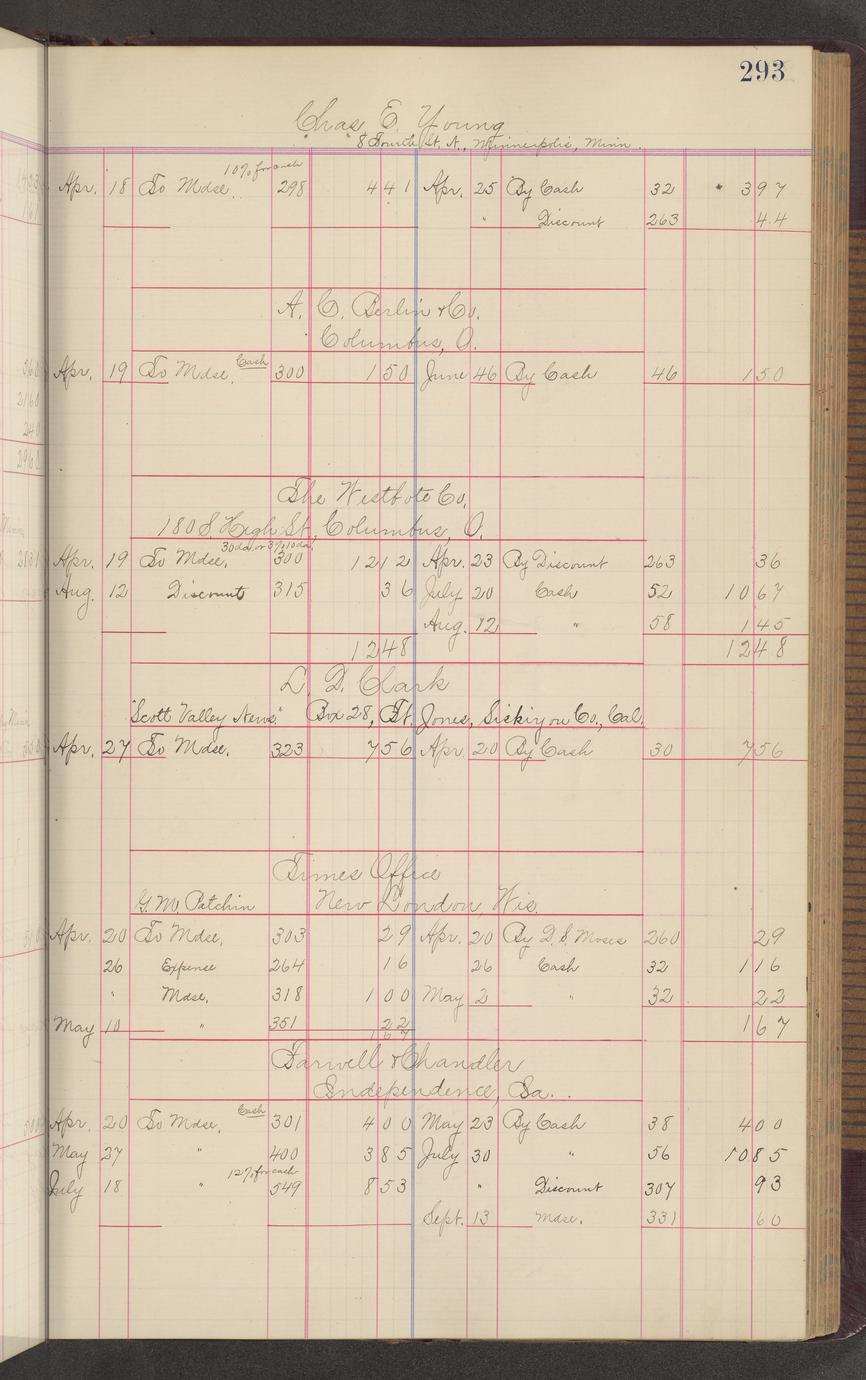 293
Chas E. Young
8 Fourth St. N., Minneapolis, Minn.
10% for cash
Apr. 18 To Mdse. 298 4 41 Apr. 25 By Cash 32 3 97
" Discount 263 44
A. C. Berlin & Co.
Columbus, O.
Apr. 19 To Mdse. Cash 300 1 50 June 46 By Cash 46 1 50
The Westbote Co.
180 S. High St., Columbus, O.
30 da. or 3% 10 da.
Apr. 19 To Mdse. 300 12 12 Apr. 23 By Discount 263 36
Aug. 12 Discount 315 36 July 20 Cash 52 10 67
Aug. 12 " 58 1 45
12 48 12 48
L. D. Clark
"Scott Valley News" Box 28, Ft. Jones, Siskiyou Co., Cal.
Apr. 27 To Mdse. 323 7 56 Apr. 20 By Cash 30 7 56
Times Office
G. M. Patchin New London, Wis.
Apr. 20 To Mdse. 303 29 Apr. 20 By D. S. Moses 260 29
26 Expense 264 16 26 Cash 32 1 16
" Mdse. 318 1 00 May 2 " 32 22
May 10 " 351 22 1 67
1 67
Farwell & Chandler
Independence, Ia.
Apr. 20 To Mdse. Cash 301 4 00 May 23 By Cash 38 4 00
May 27 " 400 3 85 July 30 " 56 10 85
12% for cash
July 18 " 549 8 53 " Discount 307 93
Sept. 13 Mdse. 331 60